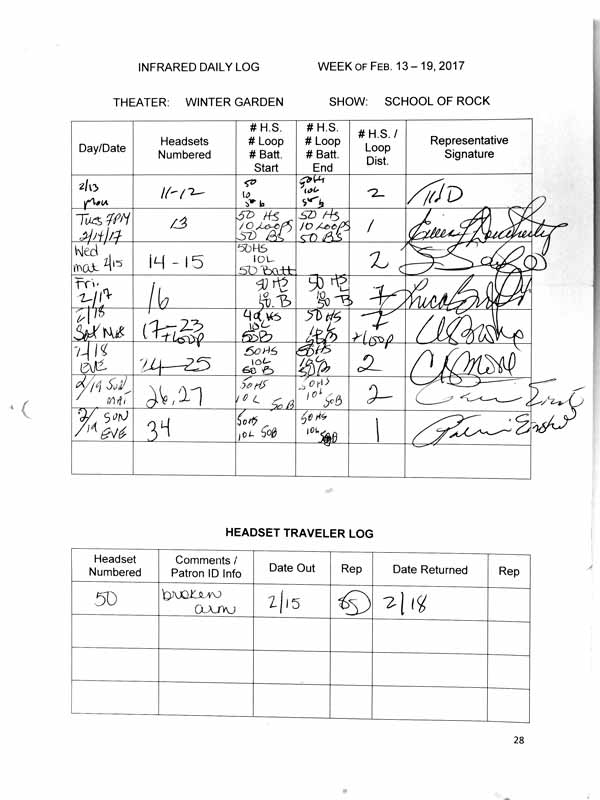 INFRARED DAILY LOG WEEK OF FEB. 13 – 19, 2017
THEATER: WINTER GARDEN SHOW: SCHOOL OF ROCK
Day/Date
Headsets
Numbered
# H.S.
# Loop
# Batt.
Start
# H.S.
# Loop
# Batt.
End
# H.S. /
Loop
Dist.
Representative
Signature
2/13
Mon
11-12
50
10
50 b
50 HS
10L
50 b
2
Tues 7PM
2/14/17
13
50 HS
10 LOOPS
50 BS
50 HS
10 LOOPS
50 BS
1
Wed
mat 2/15
14-15
50HS
10L
50 Batt
2
Fri.
2/17
16
50 HS
10
50. B
50 HS
10
50. B
2/18
Sat Mat
17-23
+LOOP
49 HS
10L
50B
50 HS
50B
7
+LOOP
2/18
EVE
24-25
50HS
10L
50B
50HS
50B
2
2/19 Sun
mat
26,27
50HS
10L 50B
50HS
10L 50B
2
2/19 SUN
EVE
34
50HS
10L 50B
50HS
10L 50B
1
HEADSET TRAVELER LOG
Headset
Numbered
Comments /
Patron ID Info
Date Out
Rep
Date Returned
Rep
50
broken
arm
2/15
2/18
28